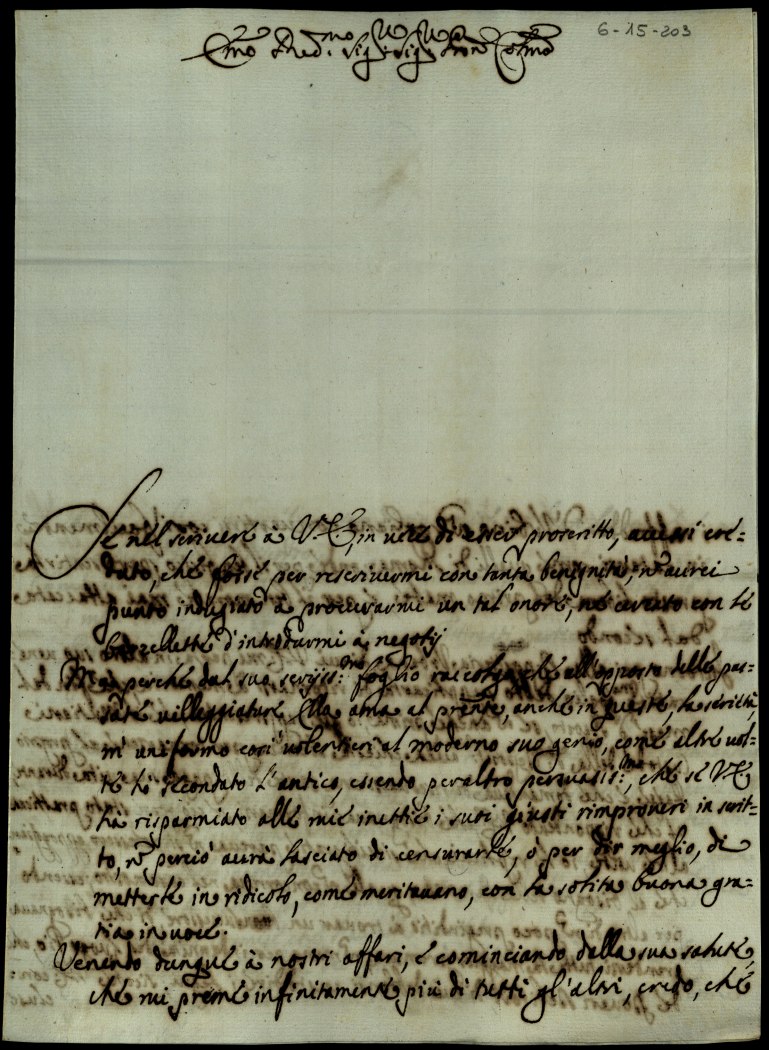 6-15-203
Em̃o e Red.mo Sig.r Sig.r Pron̄e Col.mo
Se nel scrivere à V.E., in vece di esser proscritto, avessi cre=
duto, che forse per rescrivermi con tanta benignità, nõ avrei
punto indugiato à procurarmi un tal onore, ne cercato con le
barzellette d'introdurmi à negotij
Mà perche dal suo seriiss.mo foglio raccolgo, che all'opposto delle pas=
sate villeggiature Ella ama al pr̃ente, anche in queste, la serietà,
m'uniformo così volentieri al moderno suo genio, come altre vol=
te hò secondato l'antico, essendo peraltro persuasiss.mo, che se V.E.
hà risparmiato alle mie inettie i suoi giusti rimproveri in scrit=
to, nõ perciò avrà lasciato di censurarle, ò per dir meglio, di
metterle in ridicolo, come meritavano, con la solita buona gra=
tia in voce.
Venendo dunque à nostri affari, e cominciando dalla sua salute,
che mi preme infinitamente più di tutti gl'altri, credo, che